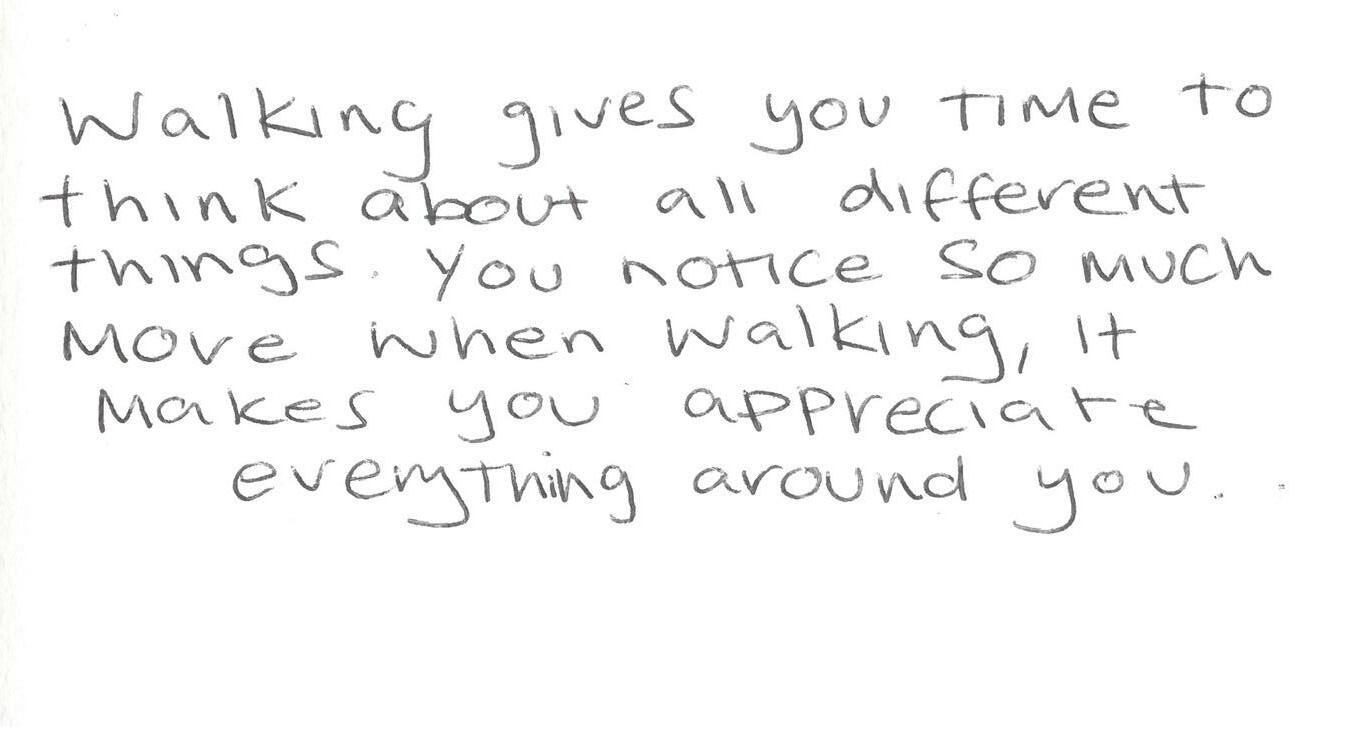 Walking gives you time to
think about all different
things. You notice so much
more when walking, it
makes you appreciate
everything around you.